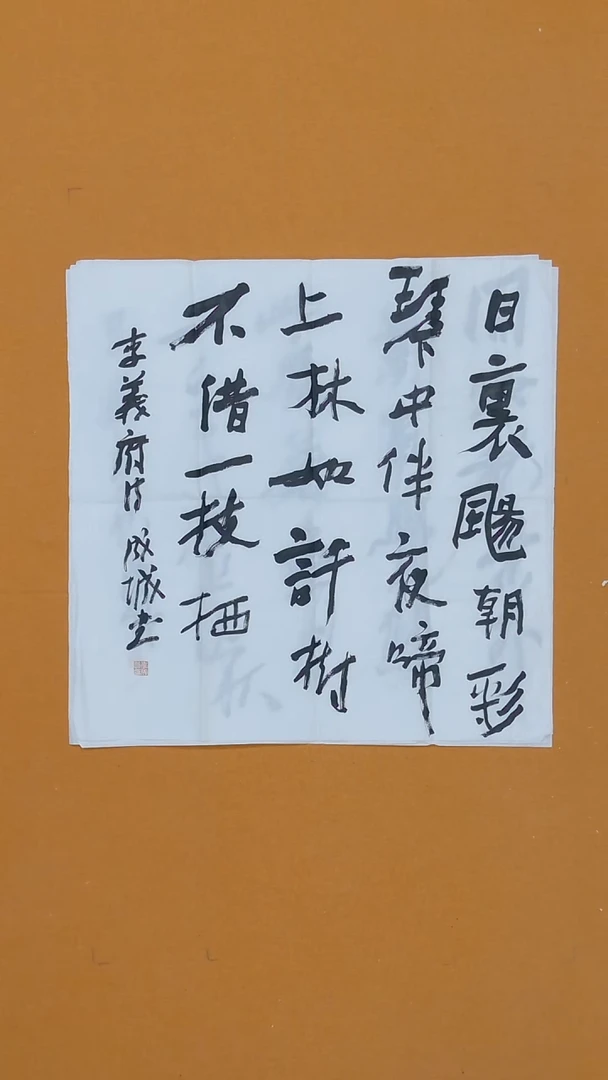 日裏颺朝彩
琴中伴夜啼
上林如許樹
不借一枝栖
李義府詩 成城書